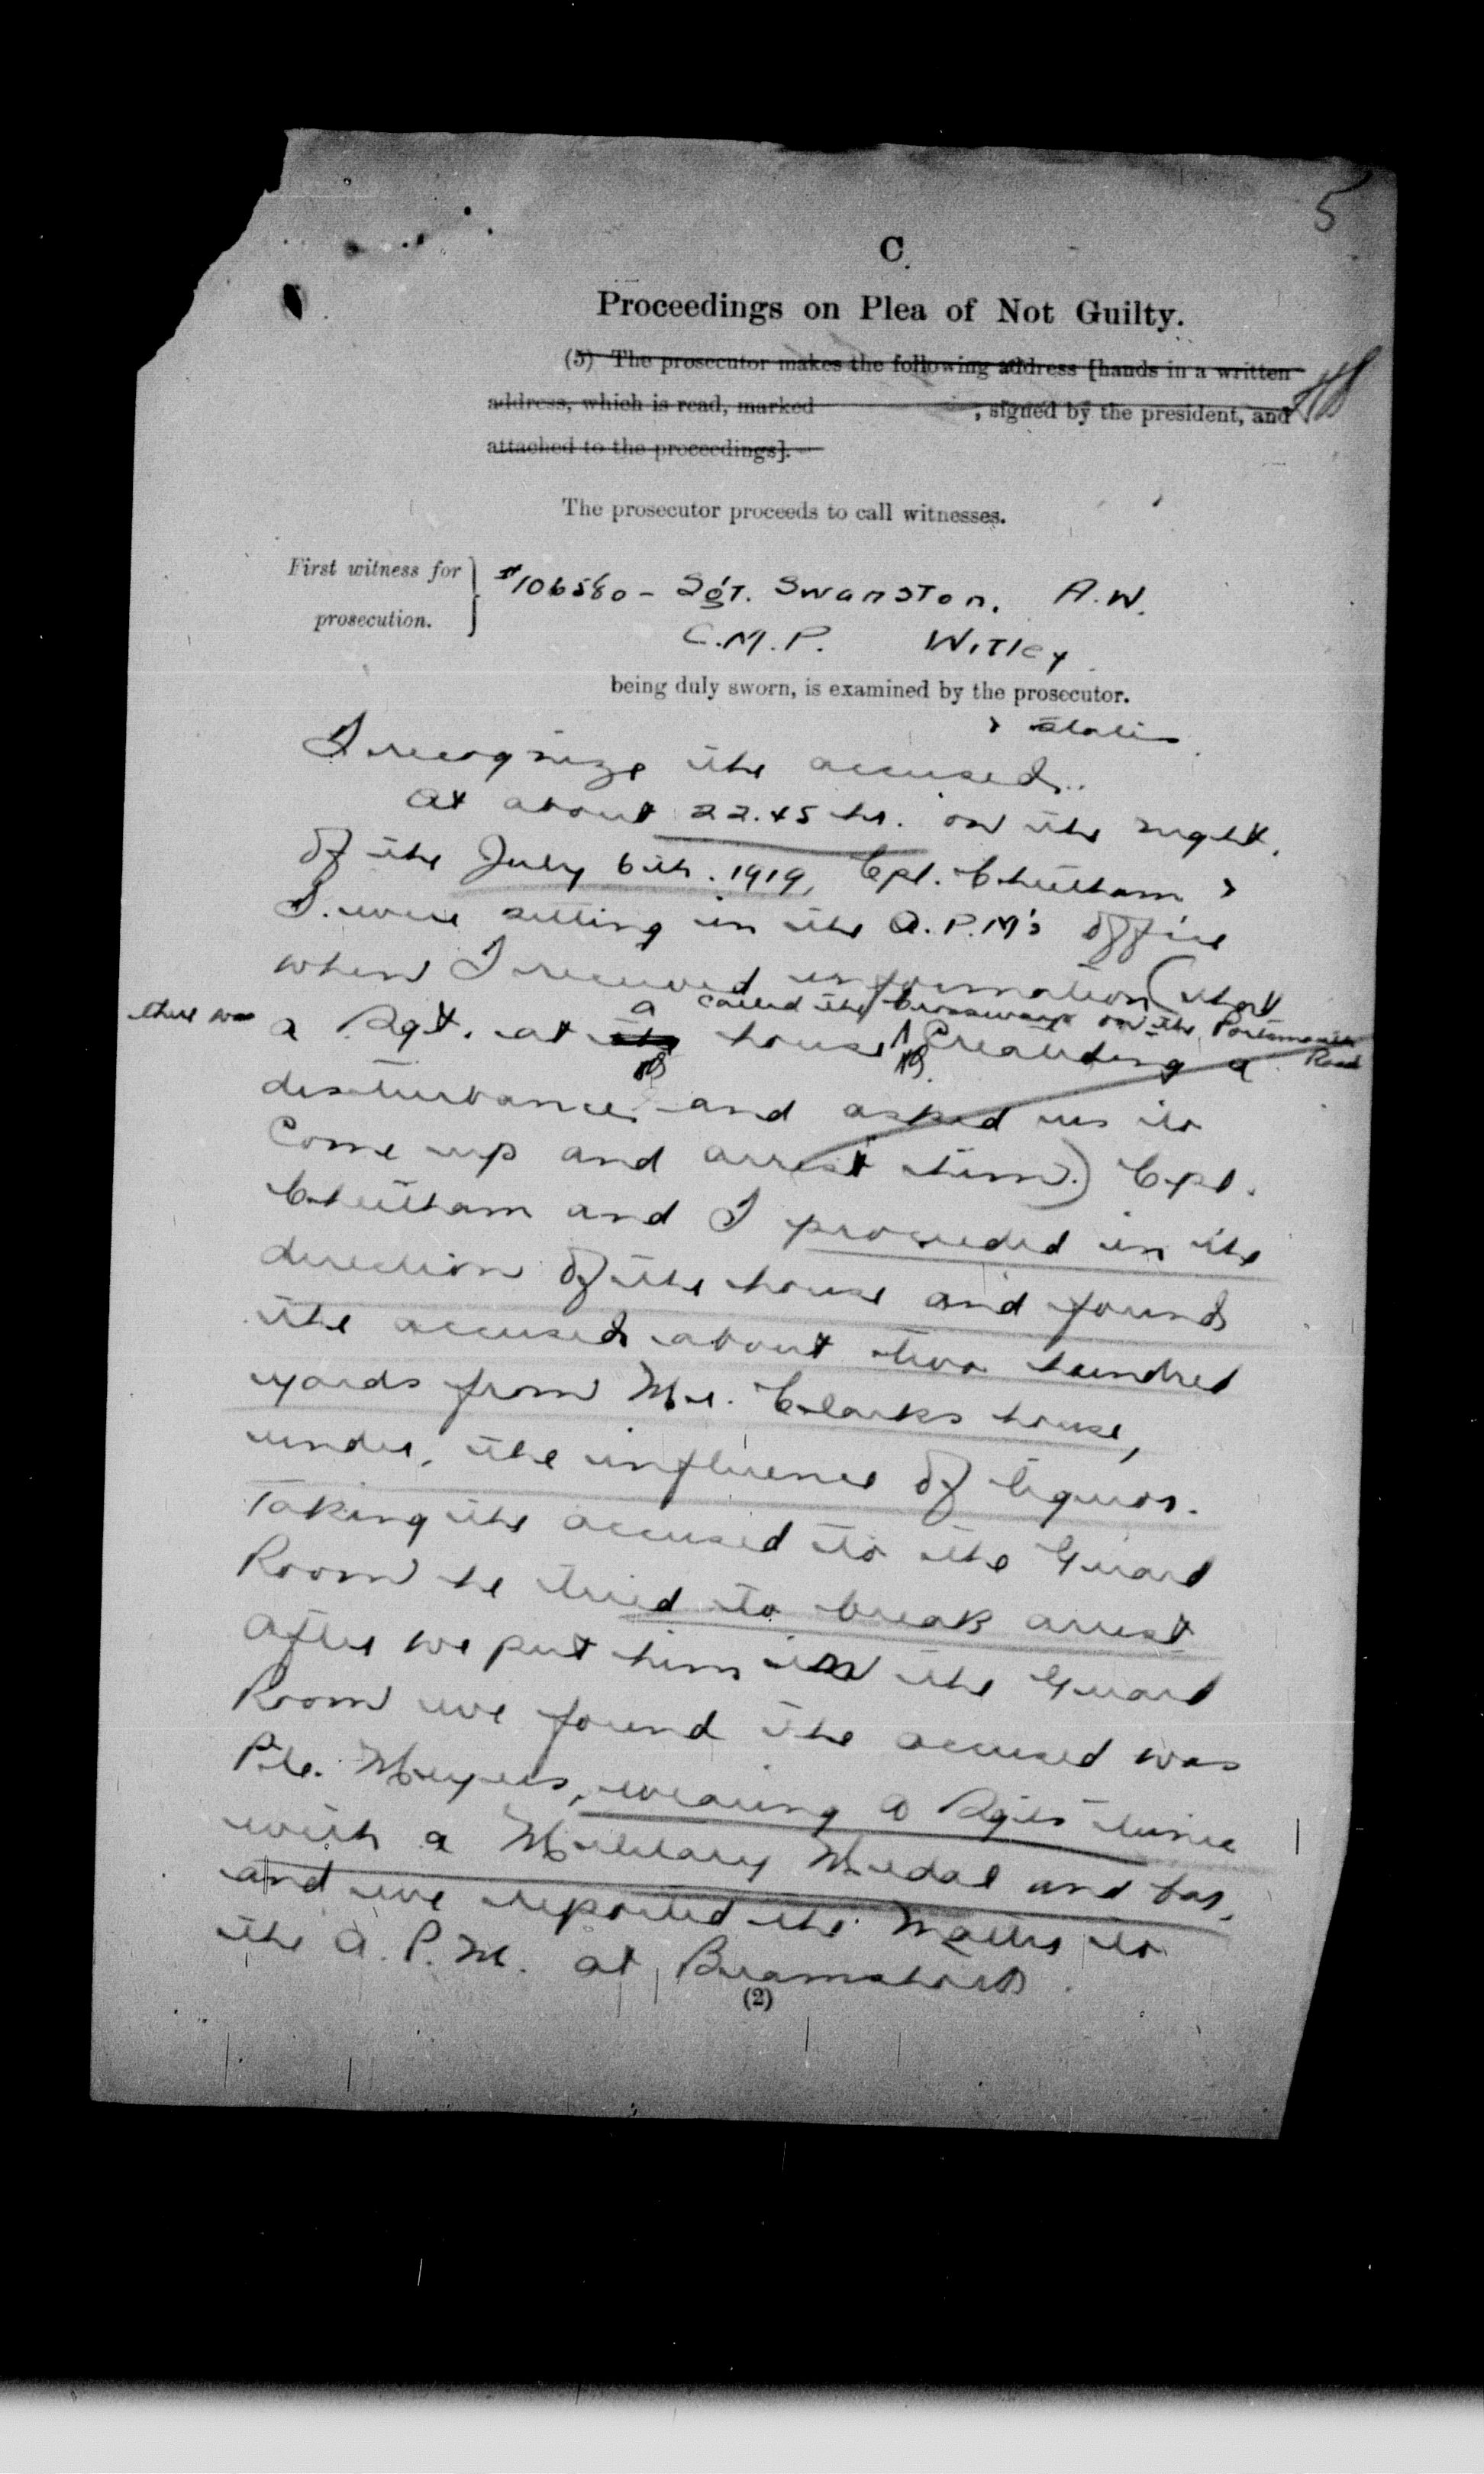 5
C.
Proceedings on Plea of Not Guilty.
(5) The prosecutor makes the following address [hands in a written
address, which is read, marked , signed by the president, and
attached to the proceedings].
The prosecutor proceeds to call witnesses.
First witness for
prosecution.
#106580 - Sgt. Swanston. A.W.
C.M.P. Witley.
being duly sworn, is examined by the prosecutor.
& states
I recognize the accused.
At about 22.45 hr. on the night.
of the July 6th. 1919, Cpl. Cheetham &
I. were sitting in the A.P.M's office
when I received information (that
there was a called the Crossways on the Portsmouth Road
a Sgt. at the house Creating a
disturbance and asked us to
Come up and arrest him.) Cpl.
Cheetham and I proceeded in the
direction of the house and found
the accused about two hundred
yards from Mr. Clarks house,
under, the influence of liquor.
Taking the accused to the Guard
Room he tried to break arrest
After we put him in the Guard
Room we found the accused was
Pte. Meyers, wearing a Sgts tunic
with a Military Medal and bar,
and we reported the matter to
the A.P.M. at Bramshott.
(2)